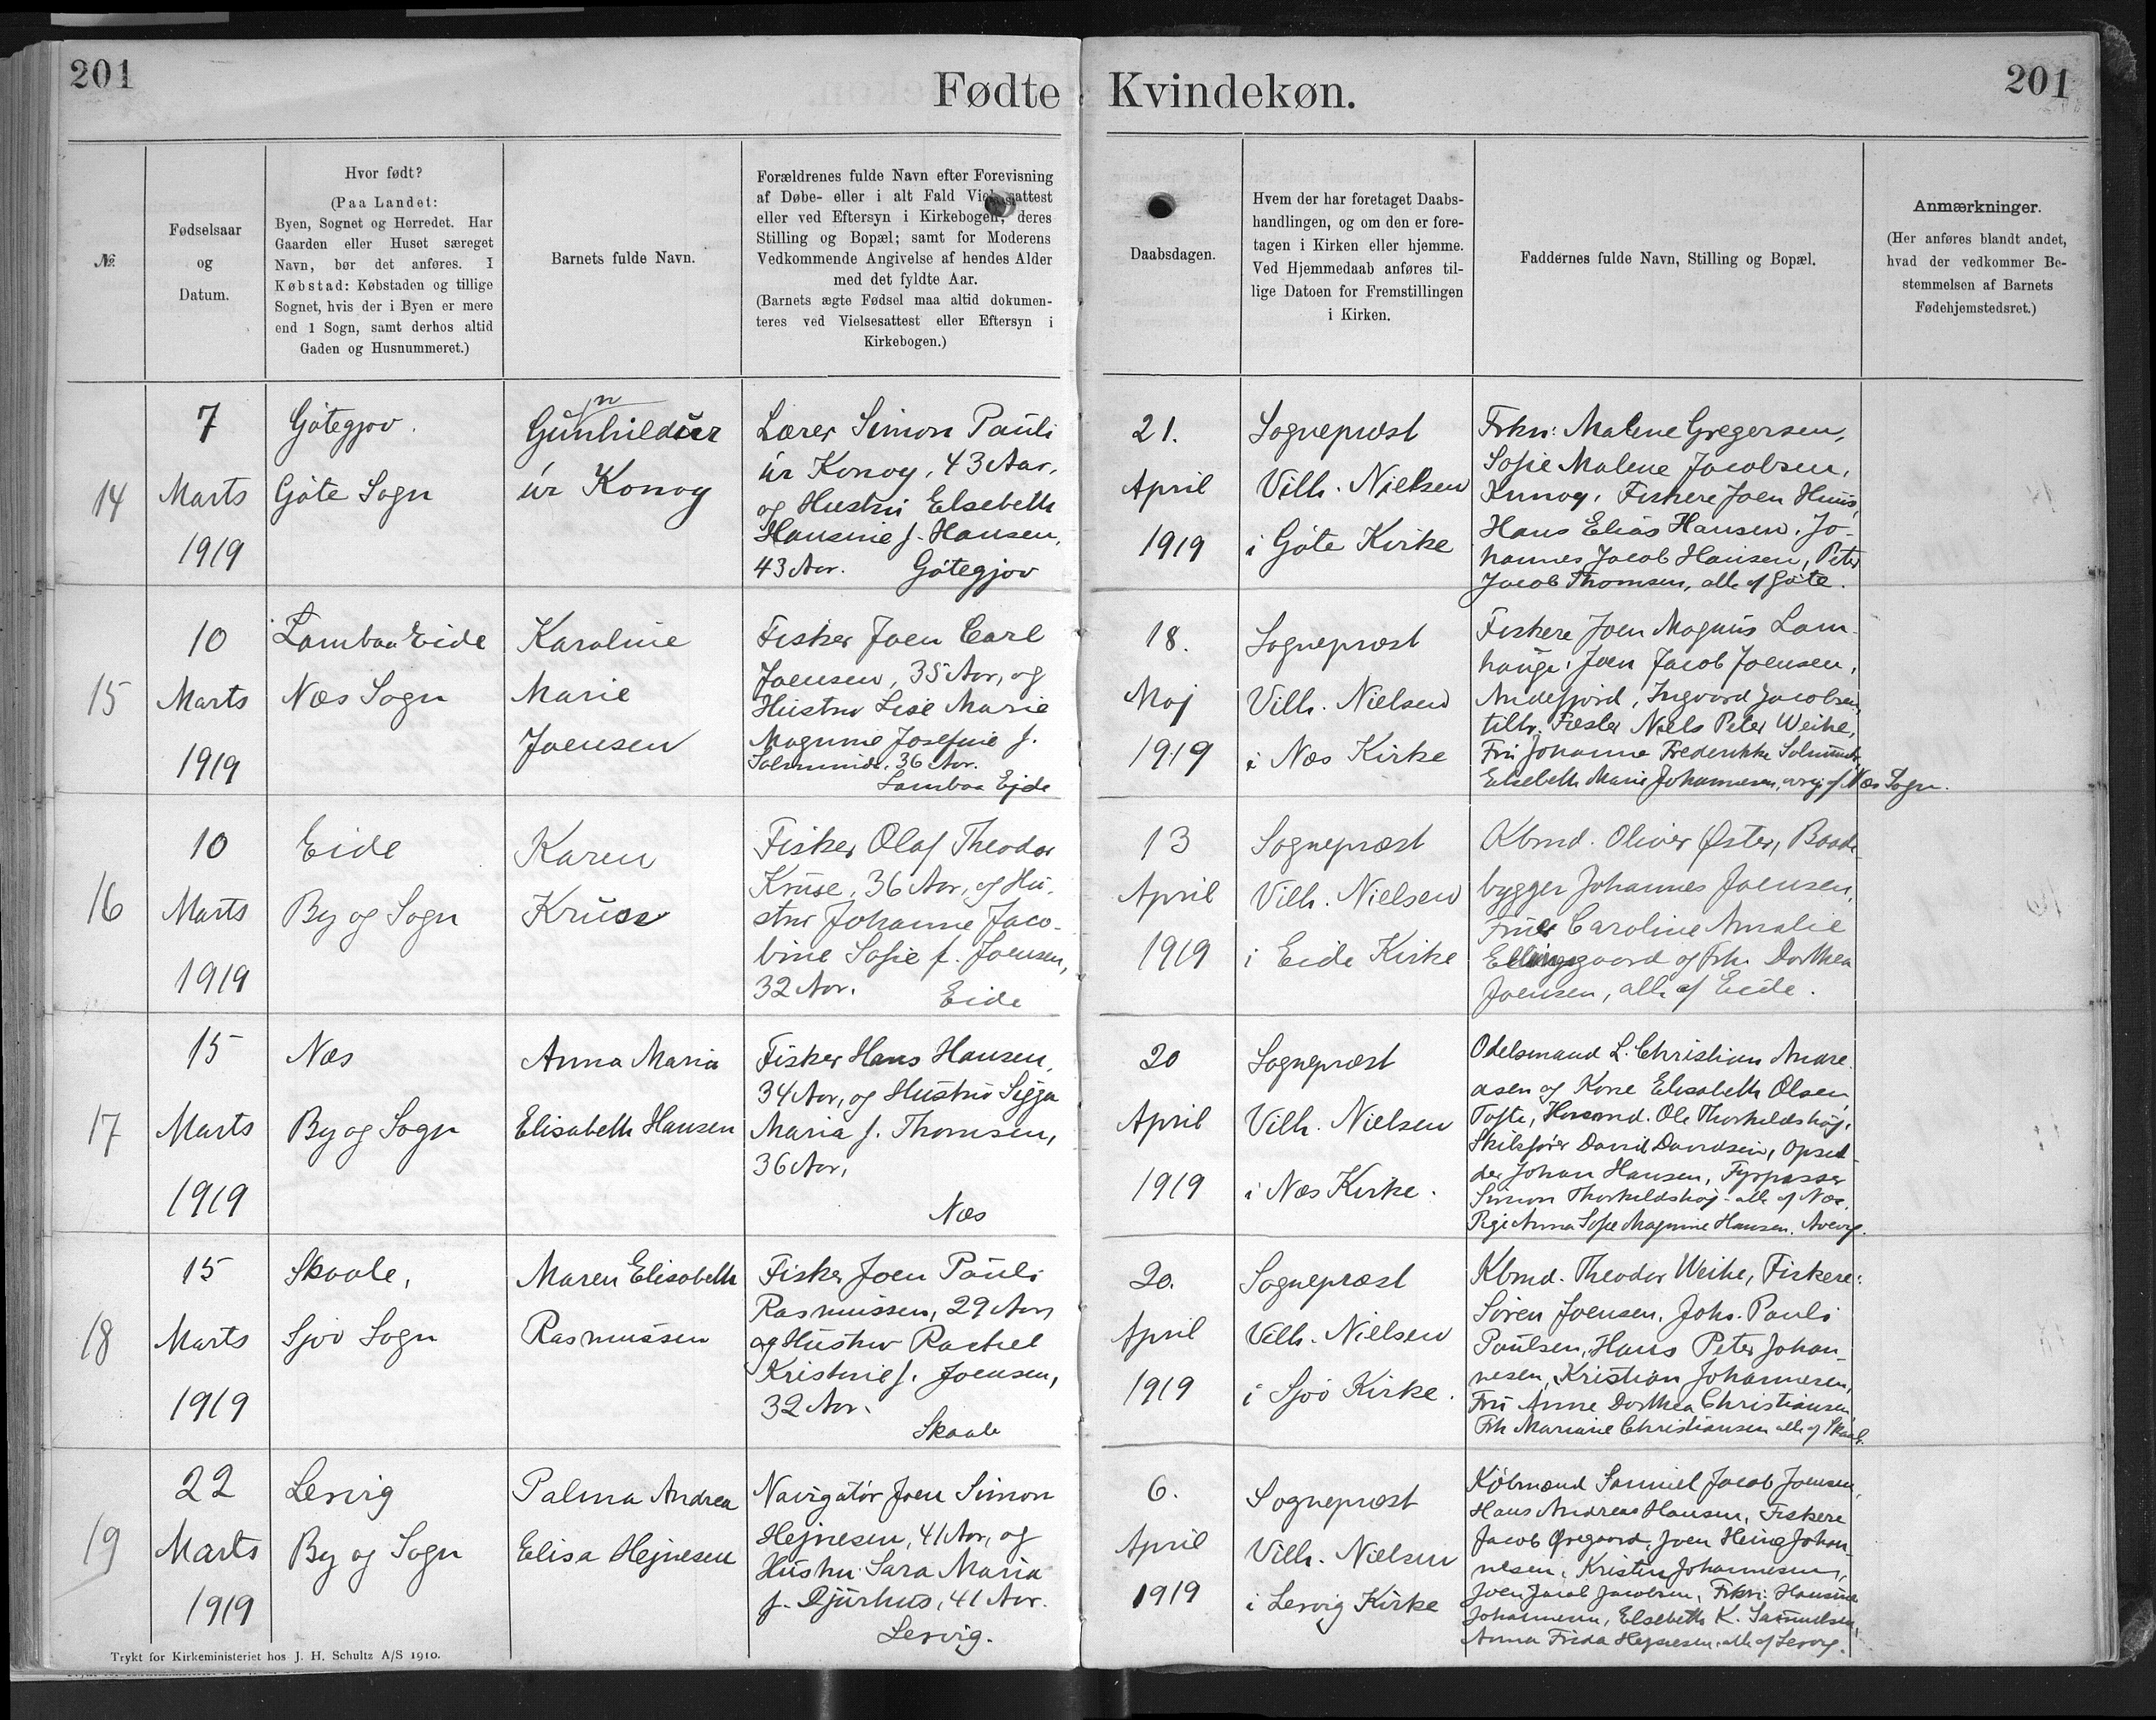 201
Fødte Kvindekøn.
201
№
Fødselsaar
og
Datum.
Hvor født?
(Paa Landet:
Byen, Sognet og Herredet. Har
Gaarden eller Huset særeget
Navn, bør det anføres. I
Købstad: Købstaden og tillige
Sognet, hvis der i Byen er mere
end 1 Sogn, samt derhos altid
Gaden og Husnummeret.)
Barnets fulde Navn.
Forældrenes fulde Navn efter Forevisning
af Døbe- eller i alt Fald Vielsesattest
eller ved Eftersyn i Kirkebogen, deres
Stilling og Bopæl; samt for Moderens
Vedkommende Angivelse af hendes Alder
med det fyldte Aar.
(Barnets ægte Fødsel maa altid dokumen-
teres ved Vielsesattest eller Eftersyn i
Kirkebogen.)
Daabsdagen.
Hvem der har foretaget Daabs-
handlingen, og om den er fore-
tagen i Kirken eller hjemme.
Ved Hjemmedaab anføres til-
lige Datoen for Fremstillingen
i Kirken.
Faddernes fulde Navn, Stilling og Bopæl.
Anmærkninger.
(Her anføres blandt andet,
hvad der vedkommer Be-
stemmelsen af Barnets
Fødehjemstedsret.)
14
7
Marts
1919
Gøtegjov.
Gøte Sogn
n
Gunhildur
úr Konoy
Lærer Simon Pauli
úr Konoy, 43 Aar,
og Hustru Elsebeth
Hansine f. Hansen,
43 Aar. Gøtegjov
21.
April
1919
Sognepræst
Vilh. Nielsen
i Gøte Kirke
Frkn: Malene Gregersen,
Sofie Malene Jacobsen,
Kunoy, Fiskere Joen Huus,
Hans Elias Hansen, Jo-
hannes Jacob Hansen, Peter
Jacob Thomsen, alle af Gøte.
15
10
Marts
1919
Lambaa Eide
Næs Sogn
Karoline
Marie
Joensen
Fisker Joen Carl
Joensen, 35 Aar, og
Hustru Lise Marie
Magnine Josefine f.
Solmunde, 36 Aar.
Lambaa Ejde
18.
Maj
1919
Sognepræst
Vilh. Nielsen
i Næs Kirke
Fiskere Joen Magnus Lam-
hauge, Joen Jacob Joensen,
Andefjord, Ingvard Jacobsen,
tilh. Fæster Niels Peter Weihe,
Fru Johanne Frederikke Solmunde,
Elsebeth Marie Johannesen, af Næs Sogn.
16
10
Marts
1919
Eide
By og Sogn
Karen
Kruse
Fisker Olaf Theodor
Kruse, 36 Aar, og Hu-
stru Johanne Jaco-
bine Sofie f. Joensen,
32 Aar. Eide
13
April
1919
Sognepræst
Vilh. Nielsen
i Eide Kirke
Kbmd. Oliver Øster, Baade-
bygger Johannes Joensen,
Fruer Caroline Amalie
Ellingsgaard og Frk. Dorthea
Joensen, alle af Eide.
17
15
Marts
1919
Næs
By og Sogn
Anna Maria
Elisabeth Hansen
Fisker Hans Hansen,
34 Aar, og Hustru Sigga
Maria f. Thomsen,
36 Aar,
Næs
20
April
1919
Sognepræst
Vilh. Nielsen
i Næs Kirke.
Odelsmand L. Christian Andre-
asen og Kone Elisabeth Olsen,
Tofte, Husmd. Ole Thorkildshøj,
David Davidsen, Opsid-
der Johan Hansen, Fyrpasser
Simon Thorkildshøj alle af Næs,
Pige Anna Sofie Magnine Hansen,
18
15
Marts
1919
Skaale,
Sjov Sogn
Maren Elisabeth
Rasmussen
Fisker Joen Pauli
Rasmussen, 29 Aar,
og Hustru Rachel
Kristine f. Joensen,
32 Aar.
Skaale
20.
April
1919
Sognepræst
Vilh. Nielsen
i Sjov Kirke.
Kbmd. Theodor Weihe, Fiskere:
Søren Joensen, Johs. Pauli
Poulsen, Hans Peter Johan-
nesen, Kristian Johannesen,
Fru Anne Dorthea Christiansen,
Frk Mariane Christiansen alle af Skaale.
19
22
Marts
1919
Lervig
By og Sogn
Palma Andrea
Elisa Hejnesen
Navigatør Joen Simon
Hejnesen, 41 Aar, og
Hustru Sara Maria
f. Djurhus, 41 Aar.
Lervig.
6.
April
1919
Sognepræst
Vilh. Nielsen
i Lervig Kirke
Købmænd Samuel Jacob Joensen,
Hans Andreas Hansen, Fiskere
Jacob Øregaard, Joen Heine Johan-
nesen, Kristen Johannesen,
Joen Jacob Jacobsen, Frkn: Hansine
Johannesen, Elsebeth K. Samuelsen,
Anna Frida Hejnesen, alle af Lervig.
Trykt for Kirkeministeriet hos J. H. Schultz A/S 1910.